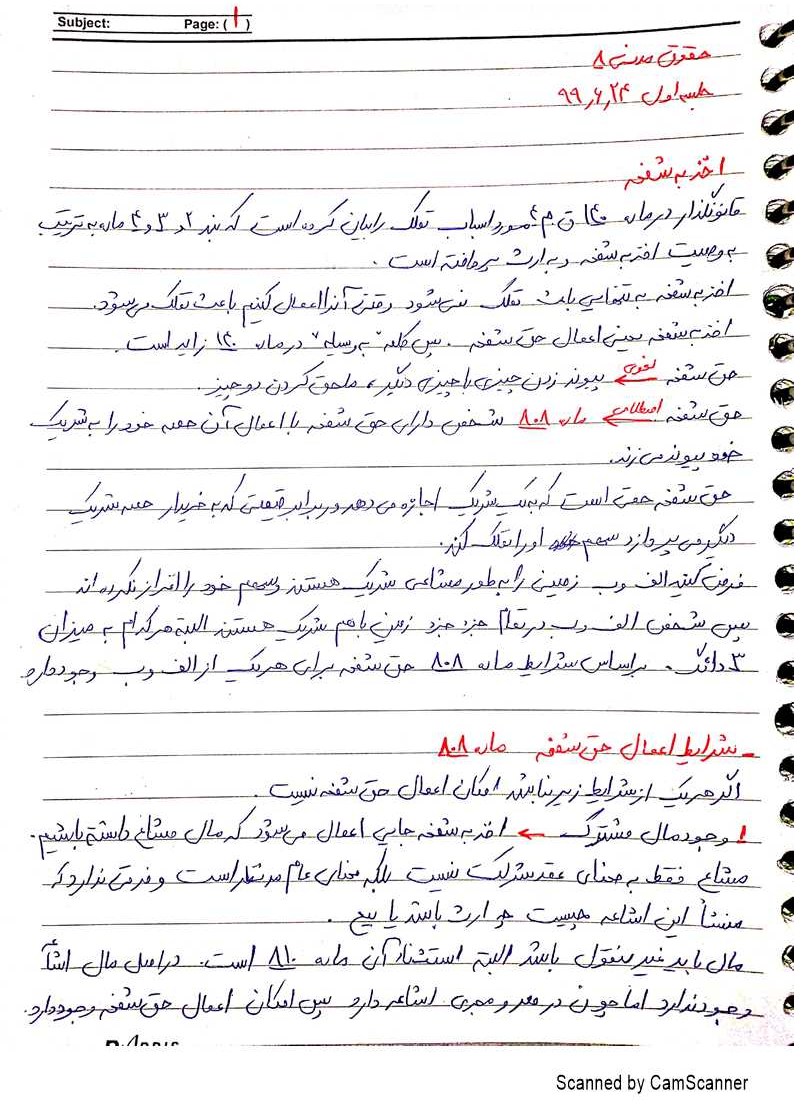 Subject:
Page: (1)
حقوق مدنی ۸
جلسه اول ۹۹٫۶٫۲۴
اخذ به شفعه
قانونگذار در ماده ۱۴۰ ق م ۴ مورد اسباب تملک را بیان کرده است که بند ۲ و ۳ و ۴ ماده به ترتیب
به وصیت اخذ به شفعه و به ارث پرداخته است.
اخذ به شفعه به تنهایی باعث تملک نمی‌شود وقتی آنرا اعمال کنیم باعث تملک می‌شود.
اخذ به شفعه یعنی اعمال حق شفعه. پس کلمه "به وسیله" در ماده ۱۴۰ زاید است.
حق شفعه لغوی ← پیوند زدن چیزی با چیزی دیگر، ملحق کردن دو چیز.
حق شفعه اصطلاحی ← ماده ۸۰۸ شخص دارای حق شفعه با اعمال آن حصه خود را به شریک
خود پیوند می‌زند.
حق شفعه حقی است که به یک شریک اجازه می‌دهد در برابر قیمتی که به خریدار حصه شریک
دیگر می‌پردازد سهم او را تملک کند.
فرض کنید الف و ب زمینی را به طور مشاعی شریک هستند و سهم خود را افراز نکرده‌اند
پس شخص الف و ب در تمام جزء جزء زمین باهم شریک هستند البته هر کدام به میزان
۳ دانگ. براساس شرایط ماده ۸۰۸ حق شفعه برای هریک از الف و ب وجود دارد
- شرایط اعمال حق شفعه ماده ۸۰۸
اگر هریک از شرایط زیر نباشد امکان اعمال حق شفعه نیست.
۱ وجود مال مشترک ← اخذ به شفعه جایی اعمال می‌شود که مال مشاع داشته باشیم.
مشاع فقط به معنای عقد شرکت نیست بلکه معنای عام مد نظر است و فرقی ندارد که
منشأ این اشاعه چیست خواه ارث باشد یا بیع.
مال باید غیر منقول باشد البته استثناء آن ماده ۸۱۰ است. در اصل مال
وجود ندارد اما چون در ممر و مجری اشاعه دارد پس امکان اعمال حق شفعه وجود دارد.
Scanned by CamScanner